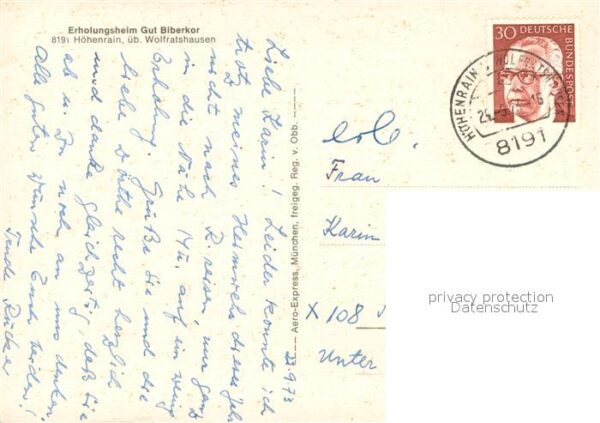 Erholungsheim Gut Biberkor
8191 Höhenrain, üb. Wolfratshausen
30 DEUTSCHE
BUNDESPOST
HÖHENRAIN
8191
Liebe Karin! Leider konnte ich
trotz meines Heimwehs dieses Jahr
nicht nach R. reisen, nur ganz
in die Nähe M. auf ein wenig
Erholung. Grüße Sie und die
liebe Dörthe recht herzlich
und danke gleichzeitig daß Sie
ab u. zu noch an uns denken.
Alle guten Wünsche Euch beiden!
23.9.73
Aero-Express, München, freigeg. Reg. v. Obb.
Frau
Karin
X 108
Unter
privacy protection
Datenschutz